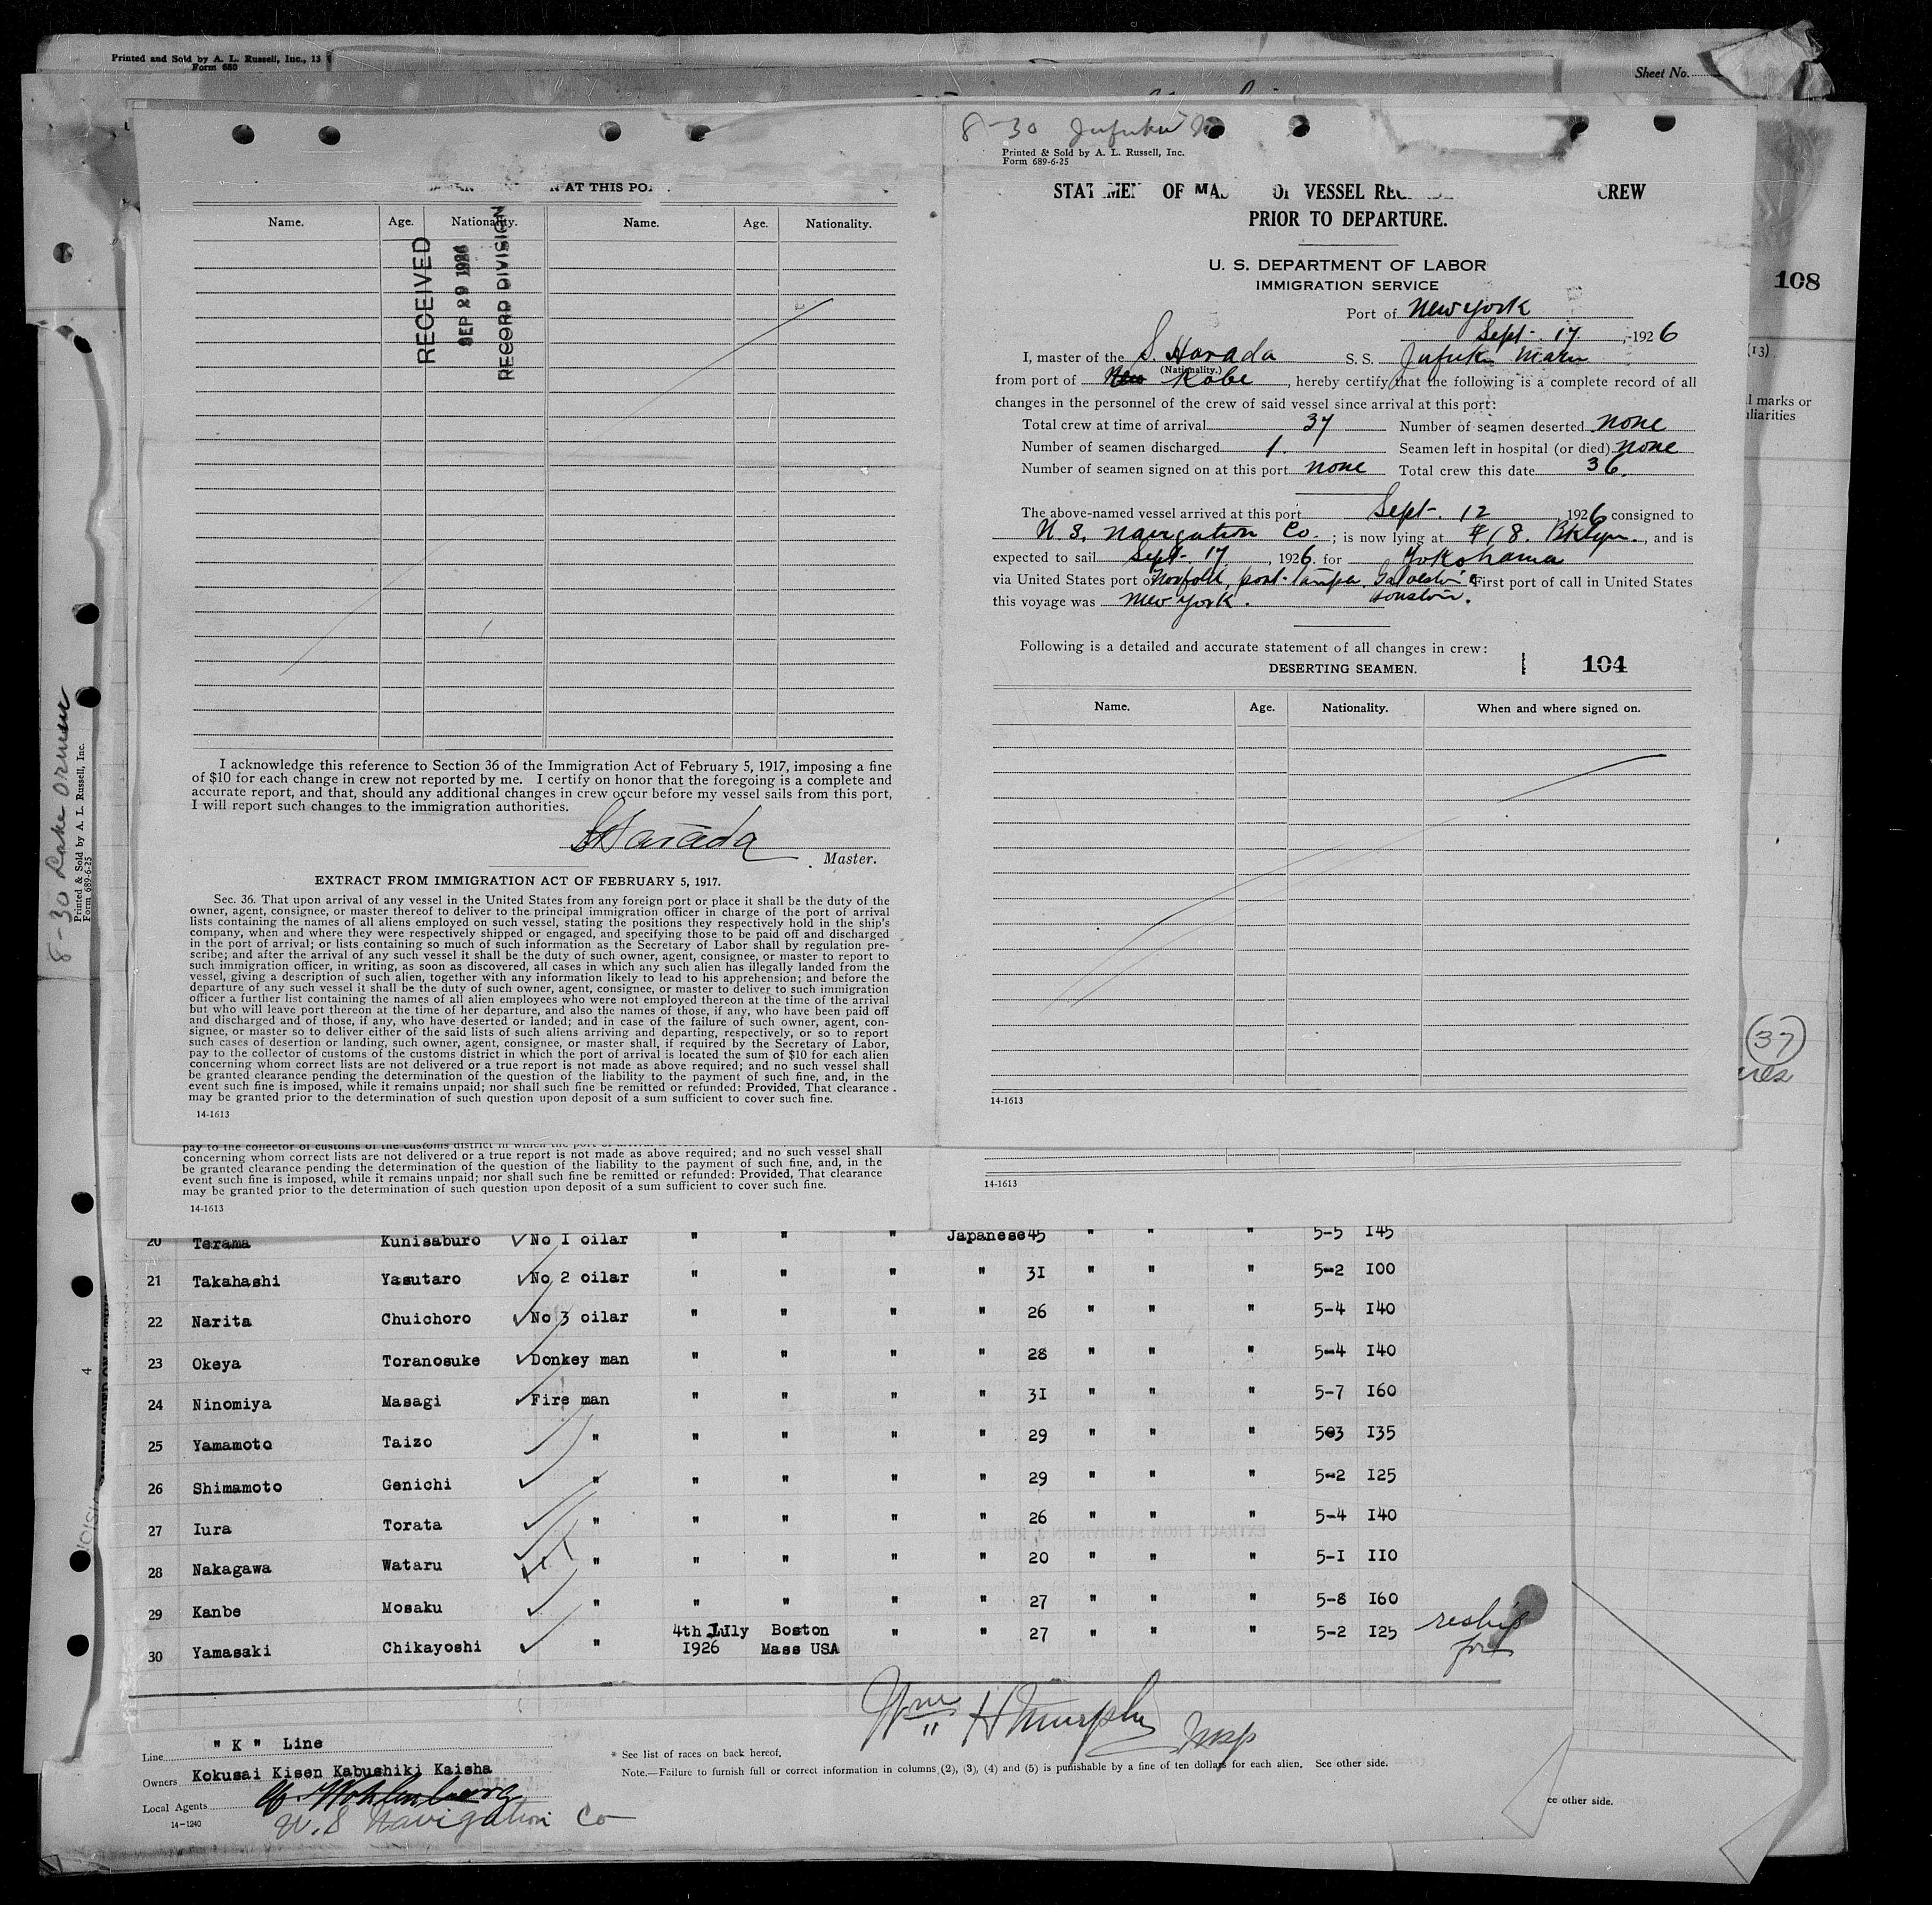 Printed and Sold by A. L. Russell, Inc., 13
Form 680
Sheet No.
N AT THIS PO
Name. Age. Nationality. Name. Age. Nationality.
RECEIVED
SEP 29 1926
RECORD DIVISION
I acknowledge this reference to Section 36 of the Immigration Act of February 5, 1917, imposing a fine
of $10 for each change in crew not reported by me. I certify on honor that the foregoing is a complete and
accurate report, and that, should any additional changes in crew occur before my vessel sails from this port,
I will report such changes to the immigration authorities.
S Harada
Master.
EXTRACT FROM IMMIGRATION ACT OF FEBRUARY 5, 1917.
Sec. 36. That upon arrival of any vessel in the United States from any foreign port or place it shall be the duty of the
owner, agent, consignee, or master thereof to deliver to the principal immigration officer in charge of the port of arrival
lists containing the names of all aliens employed on such vessel, stating the positions they respectively hold in the ship's
company, when and where they were respectively shipped or engaged, and specifying those to be paid off and discharged
in the port of arrival; or lists containing so much of such information as the Secretary of Labor shall by regulation pre-
scribe; and after the arrival of any such vessel it shall be the duty of such owner, agent, consignee, or master to report to
such immigration officer, in writing, as soon as discovered, all cases in which any such alien has illegally landed from the
vessel, giving a description of such alien, together with any information likely to lead to his apprehension; and before the
departure of any such vessel it shall be the duty of such owner, agent, consignee, or master to deliver to such immigration
officer a further list containing the names of all alien employees who were not employed thereon at the time of the arrival
but who will leave port thereon at the time of her departure, and also the names of those, if any, who have been paid off
and discharged and of those, if any, who have deserted or landed; and in case of the failure of such owner, agent, con-
signee, or master so to deliver either of the said lists of such aliens arriving and departing, respectively, or so to report
such cases of desertion or landing, such owner, agent, consignee, or master shall, if required by the Secretary of Labor,
pay to the collector of customs of the customs district in which the port of arrival is located the sum of $10 for each alien
concerning whom correct lists are not delivered or a true report is not made as above required; and no such vessel shall
be granted clearance pending the determination of the question of the liability to the payment of such fine, and, in the
event such fine is imposed, while it remains unpaid; nor shall such fine be remitted or refunded: Provided, That clearance
may be granted prior to the determination of such question upon deposit of a sum sufficient to cover such fine.
14-1613
8-30 Jufuku M
Printed & Sold by A. L. Russell, Inc.
Form 689-6-25
STATEMEN OF MAS OF VESSEL REG CREW
PRIOR TO DEPARTURE.
U. S. DEPARTMENT OF LABOR
IMMIGRATION SERVICE
Port of New York
Sept. 17, 1926
I, master of the S. Harada S. S. Jufuku Maru
(Nationality.)
from port of New Kobe, hereby certify that the following is a complete record of all
changes in the personnel of the crew of said vessel since arrival at this port:
Total crew at time of arrival 37 Number of seamen deserted none
Number of seamen discharged 1. Seamen left in hospital (or died) none
Number of seamen signed on at this port none Total crew this date 36.
The above-named vessel arrived at this port Sept. 12 1926 consigned to
U. S. Navigation Co.; is now lying at #18. Bklyn., and is
expected to sail Sept. 17, 1926. for Yokohama
via United States port of Norfolk, port-Tampa, Galveston & First port of call in United States
Houston.
this voyage was New York.
Following is a detailed and accurate statement of all changes in crew:
DESERTING SEAMEN.
104
Name. Age. Nationality. When and where signed on.
14-1613
108
(13)
l marks or
liarities
37
8-30 Lake Ormoc
Printed & Sold by A. L. Russell, Inc.
Form 689-6-25
4
pay to the collector of customs of the customs district in which the port of
concerning whom correct lists are not delivered or a true report is not made as above required; and no such vessel shall
be granted clearance pending the determination of the question of the liability to the payment of such fine, and, in the
event such fine is imposed, while it remains unpaid; nor shall such fine be remitted or refunded: Provided, That clearance
may be granted prior to the determination of such question upon deposit of a sum sufficient to cover such fine.
14-1613
14-1613
20 Terama Kunisaburo No I oilar " " " Japanese 45 " " " 5-5 I45
21 Takahashi Yasutaro No 2 oilar " " " " 3I " " " 5-2 I00
22 Narita Chuichoro No 3 oilar " " " " 26 " " " 5-4 I40
23 Okeya Toranosuke Donkey man " " " " 28 " " " 5-4 I40
24 Ninomiya Masagi Fire man " " " " 3I " " " 5-7 I60
25 Yamamoto Taizo " " " " " 29 " " " 503 I35
26 Shimamoto Genichi " " " " " 29 " " " 5-2 I25
27 Iura Torata " " " " " 26 " " " 5-4 I40
28 Nakagawa Wataru " " " " " 20 " " " 5-I II0
29 Kanbe Mosaku " " " " " 27 " " " 5-8 I60
30 Yamasaki Chikayoshi " 4th July 1926 Boston Mass USA " " 27 " " " 5-2 I25 reship for
Wm H Murphy Insp
Line " K " Line
Owners Kokusai Kisen Kabushiki Kaisha
Local Agents
U. S Navigation Co
14-1240
* See list of races on back hereof.
Note.—Failure to furnish full or correct information in columns (2), (3), (4) and (5) is punishable by a fine of ten dollars for each alien. See other side.
ee other side.